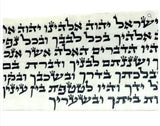 ישראל יהוה אלהינו יהוה
יהוה אלהיך בכל לבבך ובכל
היו הדברים האלה אשר
לבניך ודברת בם
בלכתך בדרך ובשכבך ובקו
ל ידך והיו לטטפת בין
ת ביתך ובשעריך